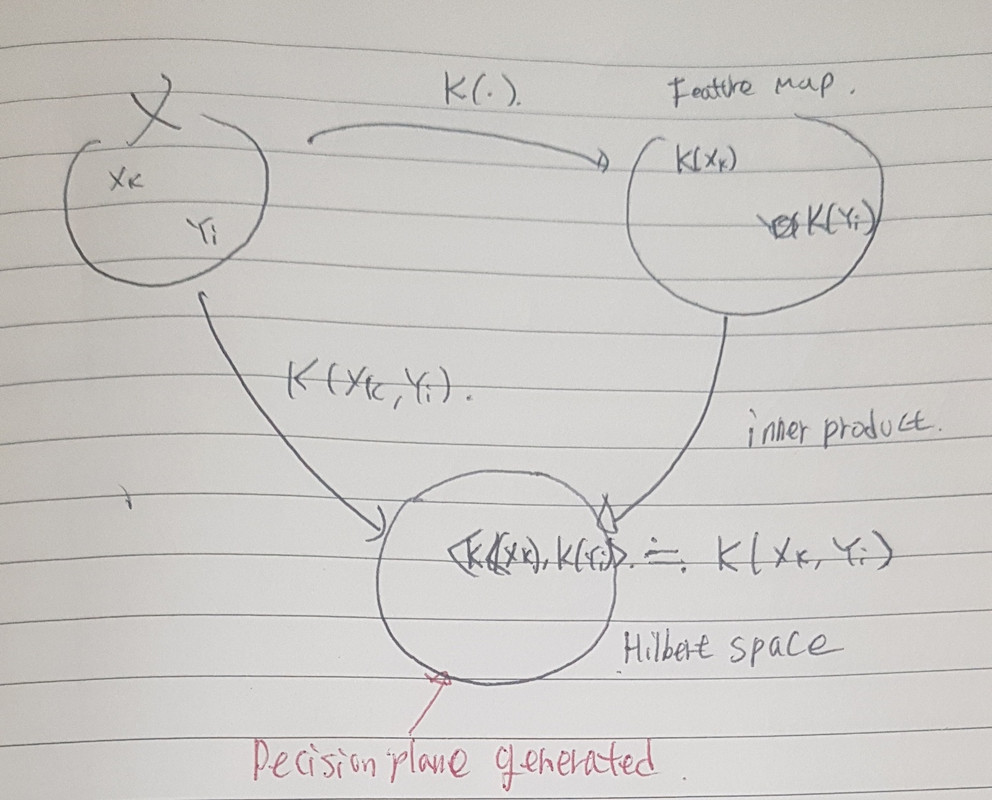 K(·).
Feature map.
X
Xk
Yi
K(Xk)
K(Yi)
K(Xk, Yi).
inner product.
<K(Xk), K(Yi)>. ≒. K(Xk, Yi)
Hilbert space
Decision plane generated.